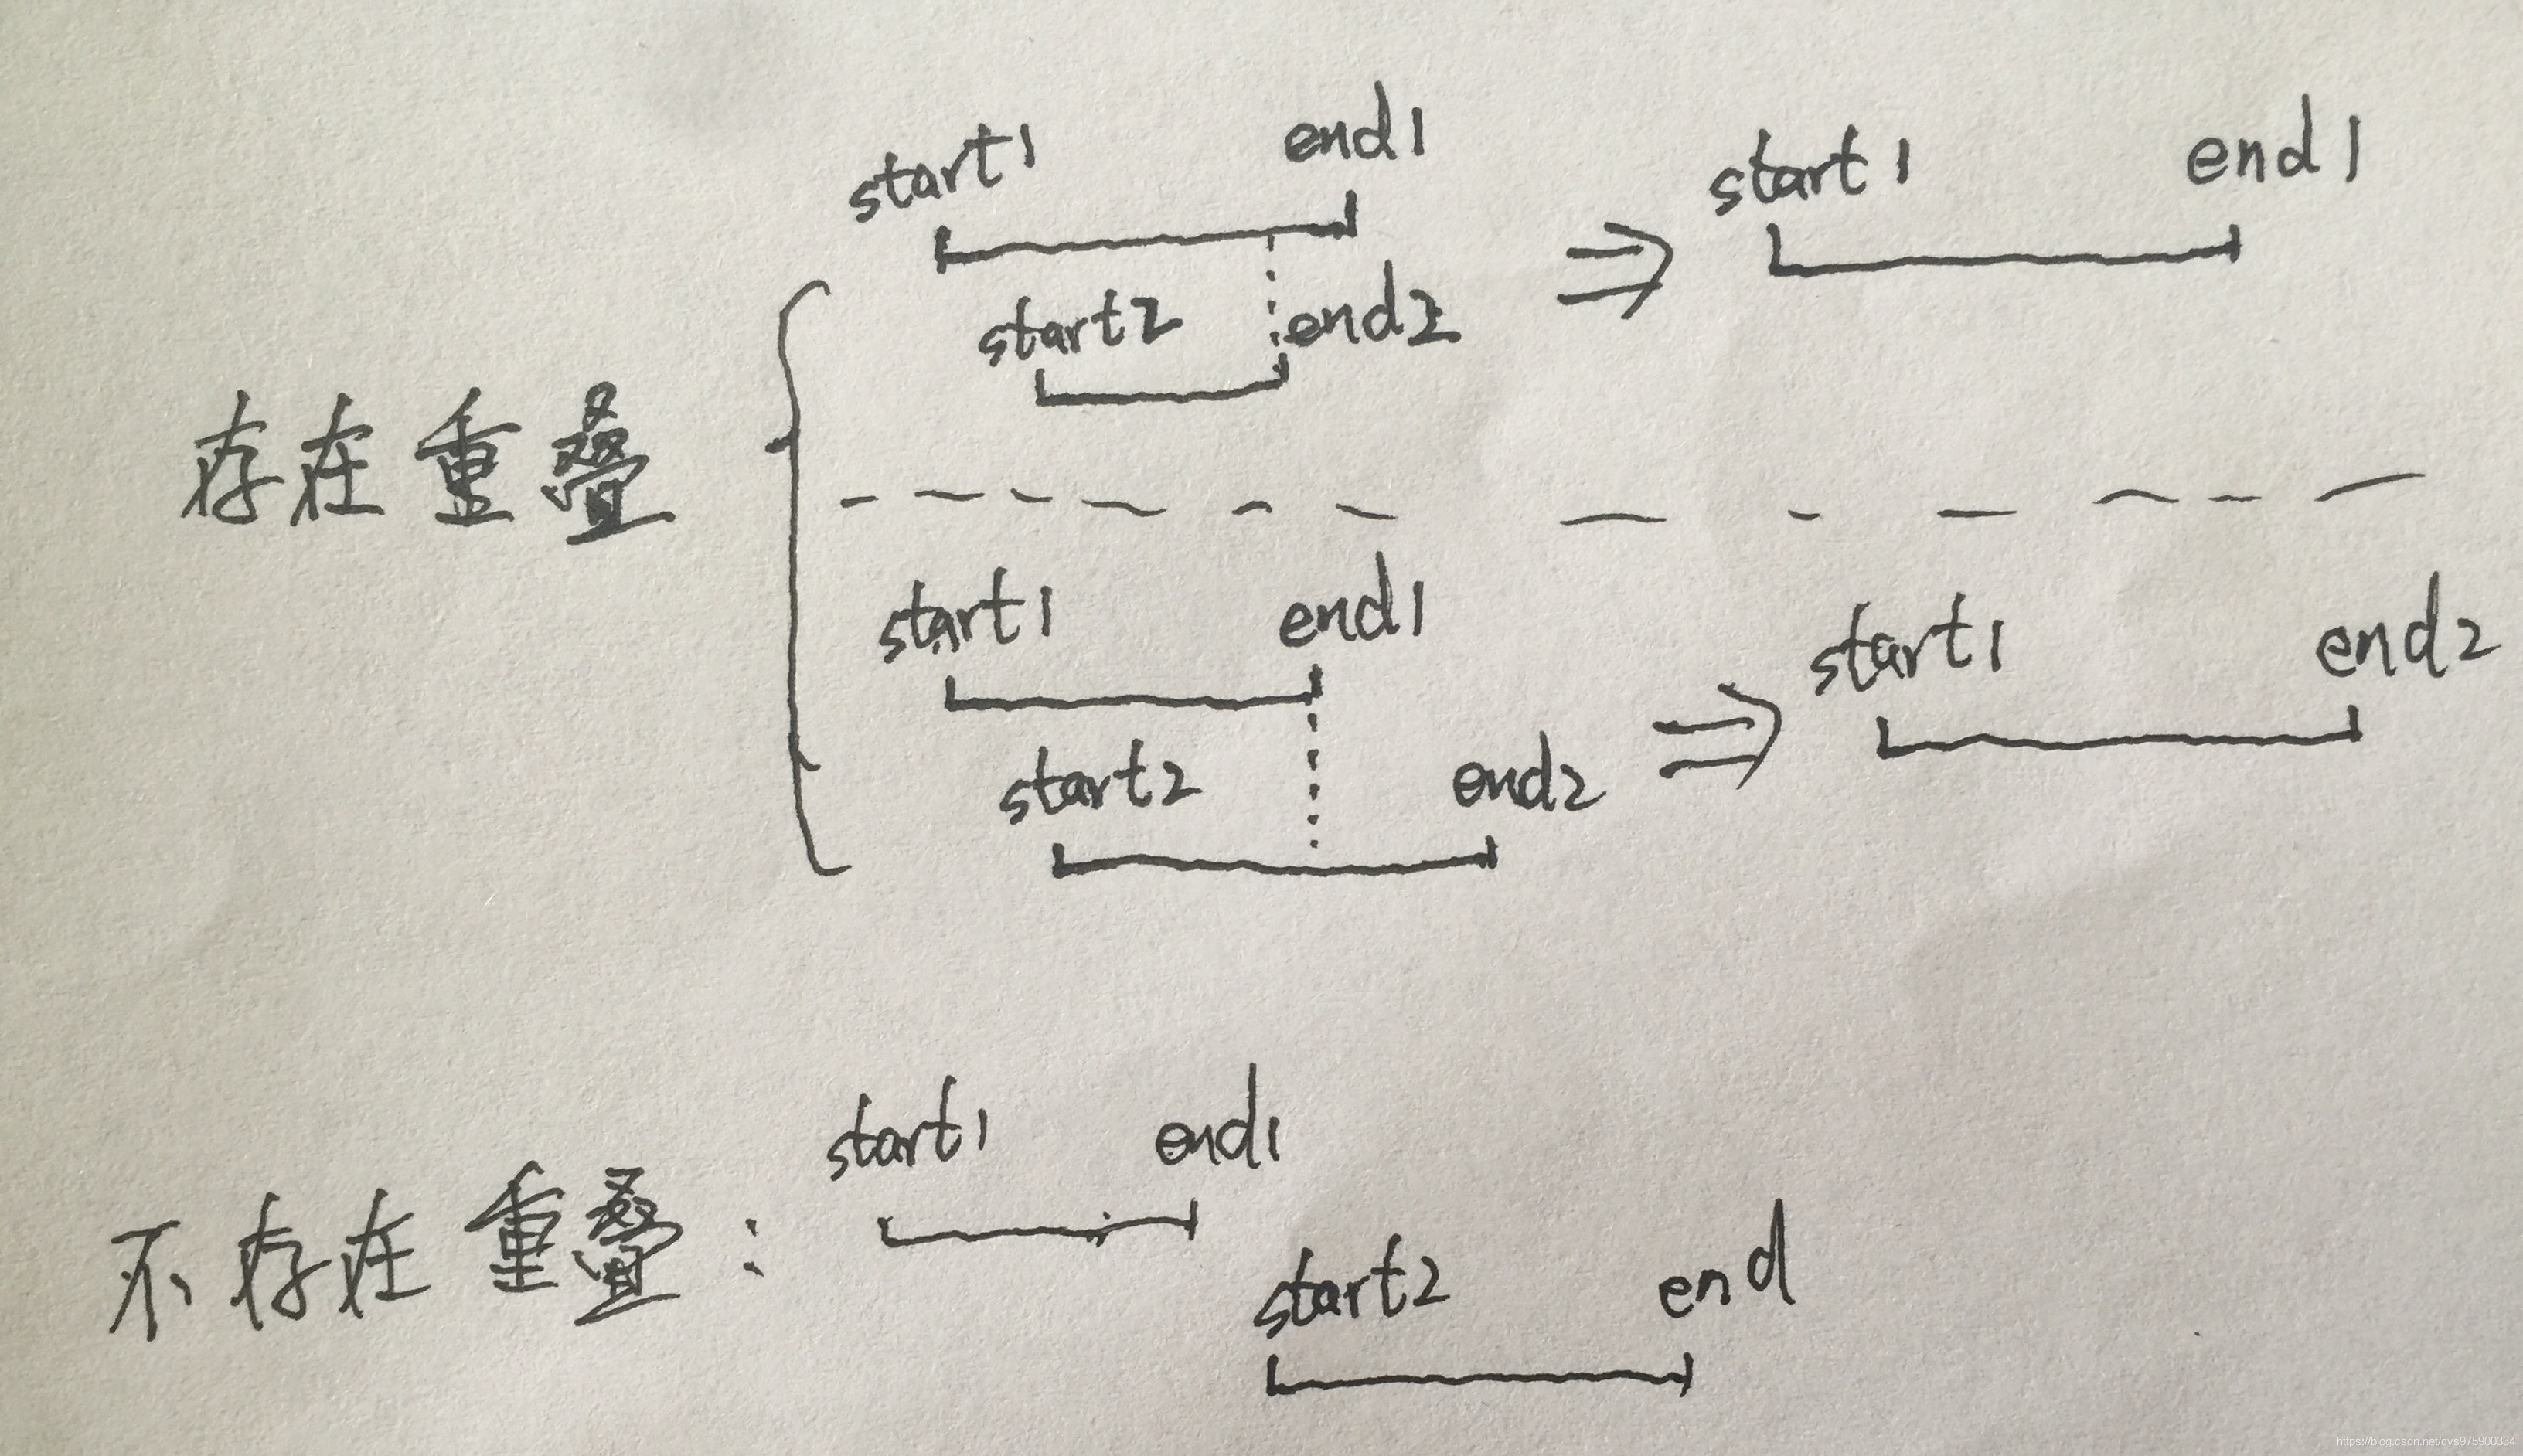 start1 end1
start1 end1
start2 end2
存在重叠
start1 end1
start1 end2
start2 end2
start1 end1
不存在重叠:
start2 end
https://blog.csdn.net/cys975900334